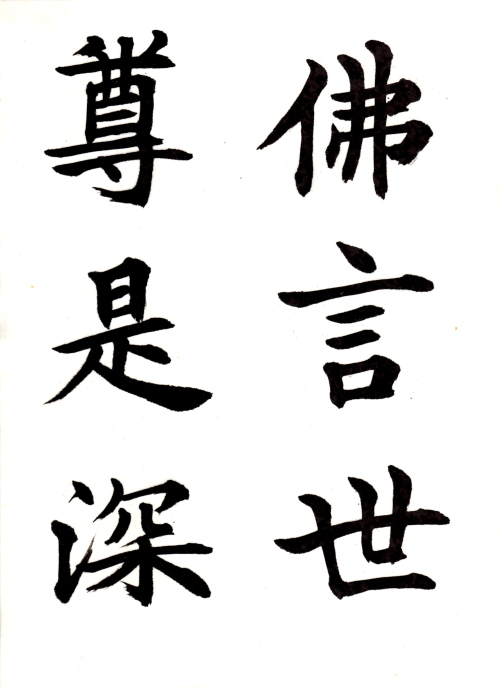 佛言世
尊是深